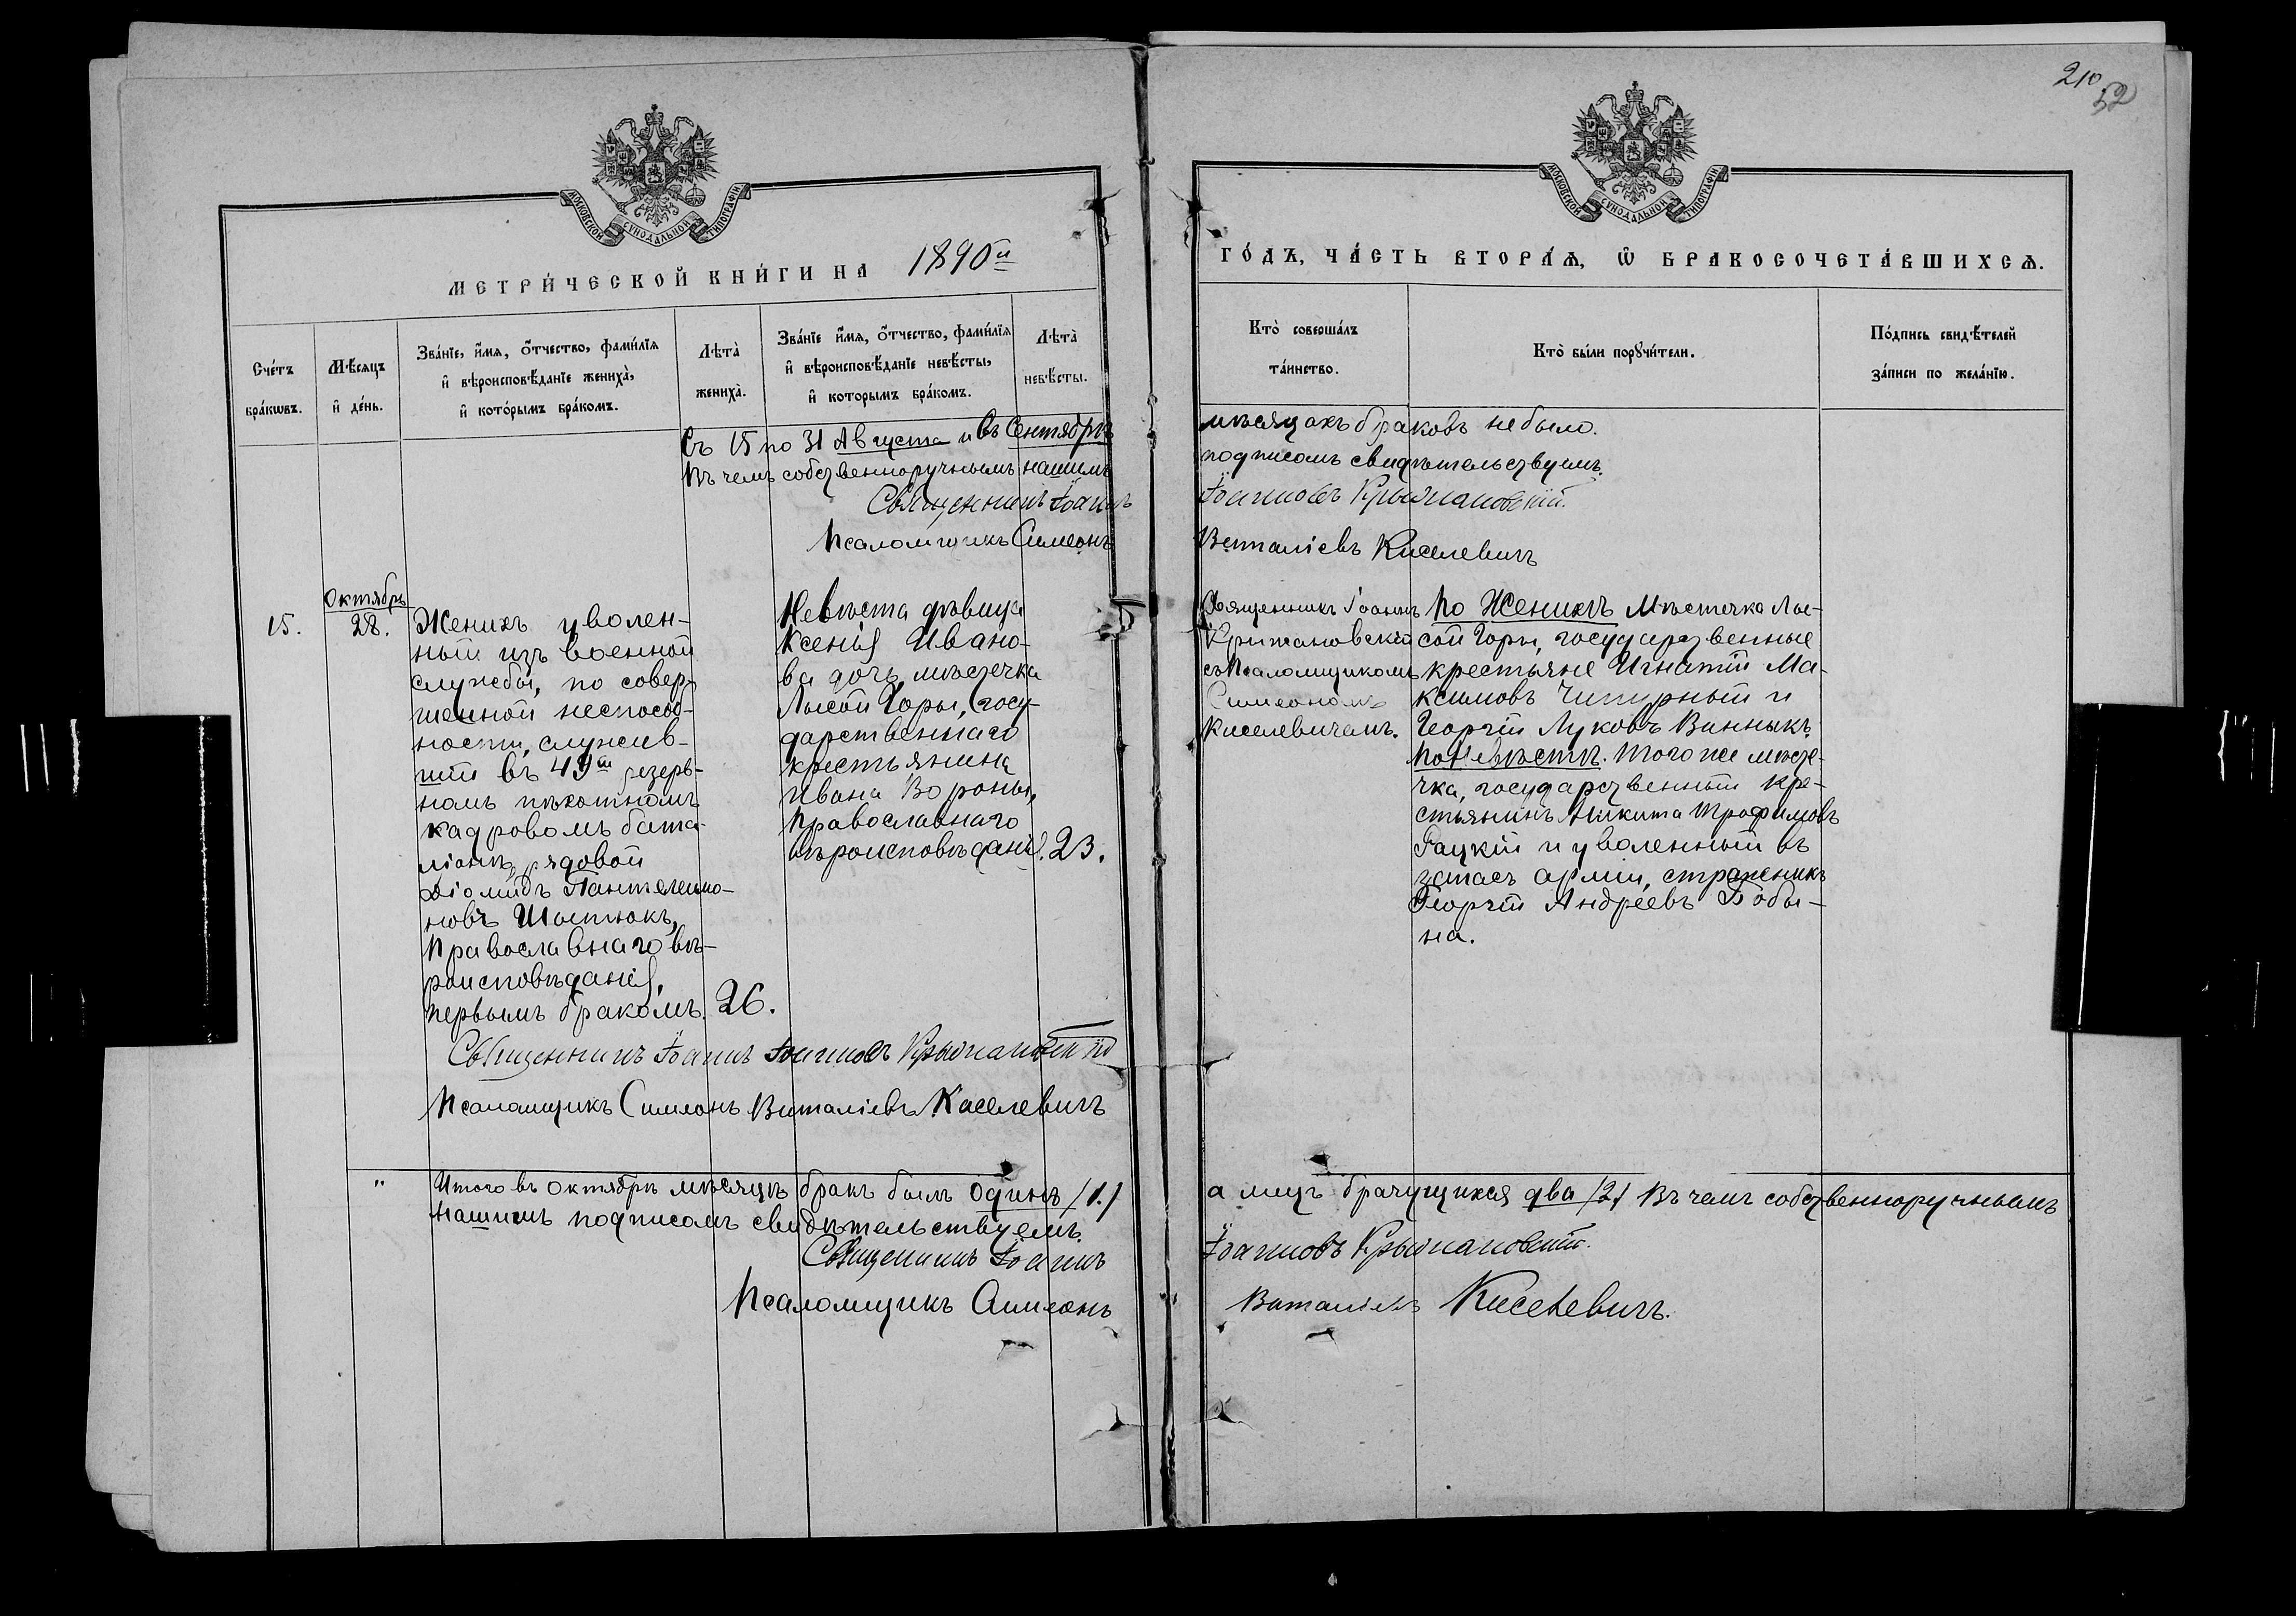 210
52
МОСКОВСКОЙ СѴНОДАЛЬНОЙ ТИПОГРАФІИ
МОСКОВСКОЙ СѴНОДАЛЬНОЙ ТИПОГРАФІИ
МЕТРИ́ЧЕСКОЙ КНИ́ГИ НА 1890й
ГО́ДЪ, ЧА́СТЬ ВТОРА́Ѧ, Ѿ БРАКОСОЧЕТА́ВШИХСѦ.
Сче́тъ
бра́кѡвъ.
Мѣ́сяцъ
и҆ де́нь.
Зва́нїе, и҆́мя, ѻ҆́тчество, фами́лїя
и҆ вѣроисповѣ́данїе жениха̀,
и҆ кото́рымъ бра́комъ.
Лѣта̀
жениха̀.
Зва́нїе и҆́мя, ѻ҆́тчество, фами́лїя
и҆ вѣроисповѣ́данїе невѣ́сты,
и҆ которымъ бра́комъ.
Лѣта̀
невѣ́сты.
Кто̀ соверша́лъ
та́инство.
Кто̀ бы́ли порꙋчи́тели.
По́дпись свидѣ́телей
за́писи по жела́нїю.
Съ 15 по 31 Августа и въ Сентябрѣ
мѣсяцахъ браковъ не было.
Въ чемъ собственноручнымъ нашимъ
подписомъ свидѣтельствуемъ.
Священникъ Іоаннъ
Іоанновъ Крыжановскій.
Псаломщикъ Симеонъ
Виталіевъ Киселевичъ
15.
Октябрь
28.
Женихъ уволен-
ный изъ военной
службы, по совер-
шенной неспособ-
ности, служив-
шій въ 49м резерв-
номъ пѣхотномъ
кадровомъ бата-
ліонѣ, рядовой
Діомидъ Пантелеимо-
новъ Шостюкъ,
Православнаго вѣ-
роисповѣданія,
первымъ бракомъ. 26.
Невѣста дѣвица
Ксенія Ивано-
ва дочь, мѣстечка
Лысой Горы, госу-
дарственнаго
крестьянина
Ивана Вороны,
Православнаго
вѣроисповѣданія. 23.
Священникъ Іоаннъ
Крыжановскій
съ Псаломщикомъ
Симеономъ
Киселевичемъ.
По Женихѣ Мѣстечка Лы-
сой Горы, государственные
крестьяне Игнатій Ма-
ксимовъ Чигирный и
Георгій Луковъ Винныкъ;
По Невѣстѣ. Того же мѣсте-
чка, государственный кре-
стьянинъ Никита Трофимовъ
Гацкій и уволенный въ
запасъ арміи, стражникъ
Георгій Андреевъ Бобы-
на.
Священникъ Іоаннъ Іоанновъ Крыжановскій
Псаломщикъ Симеонъ Виталіевъ Киселевичъ
" Итого въ Октябрѣ мѣсяцѣ бракъ былъ одинъ /1./
а лицъ брачущихся два /2/ Въ чемъ собственноручнымъ
нашимъ подписомъ свидѣтельствуемъ.
Священникъ Іоаннъ
Іоанновъ Крыжановскій.
Псаломщикъ Симеонъ
Виталіевъ Киселевичъ.